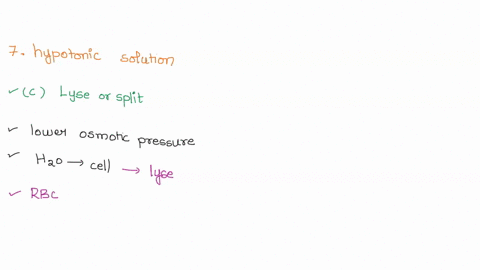 7. hypotonic solution
✓(c) Lyse or split
✓ lower osmotic pressure
✓ H₂O → cell → lyse
✓ RBC